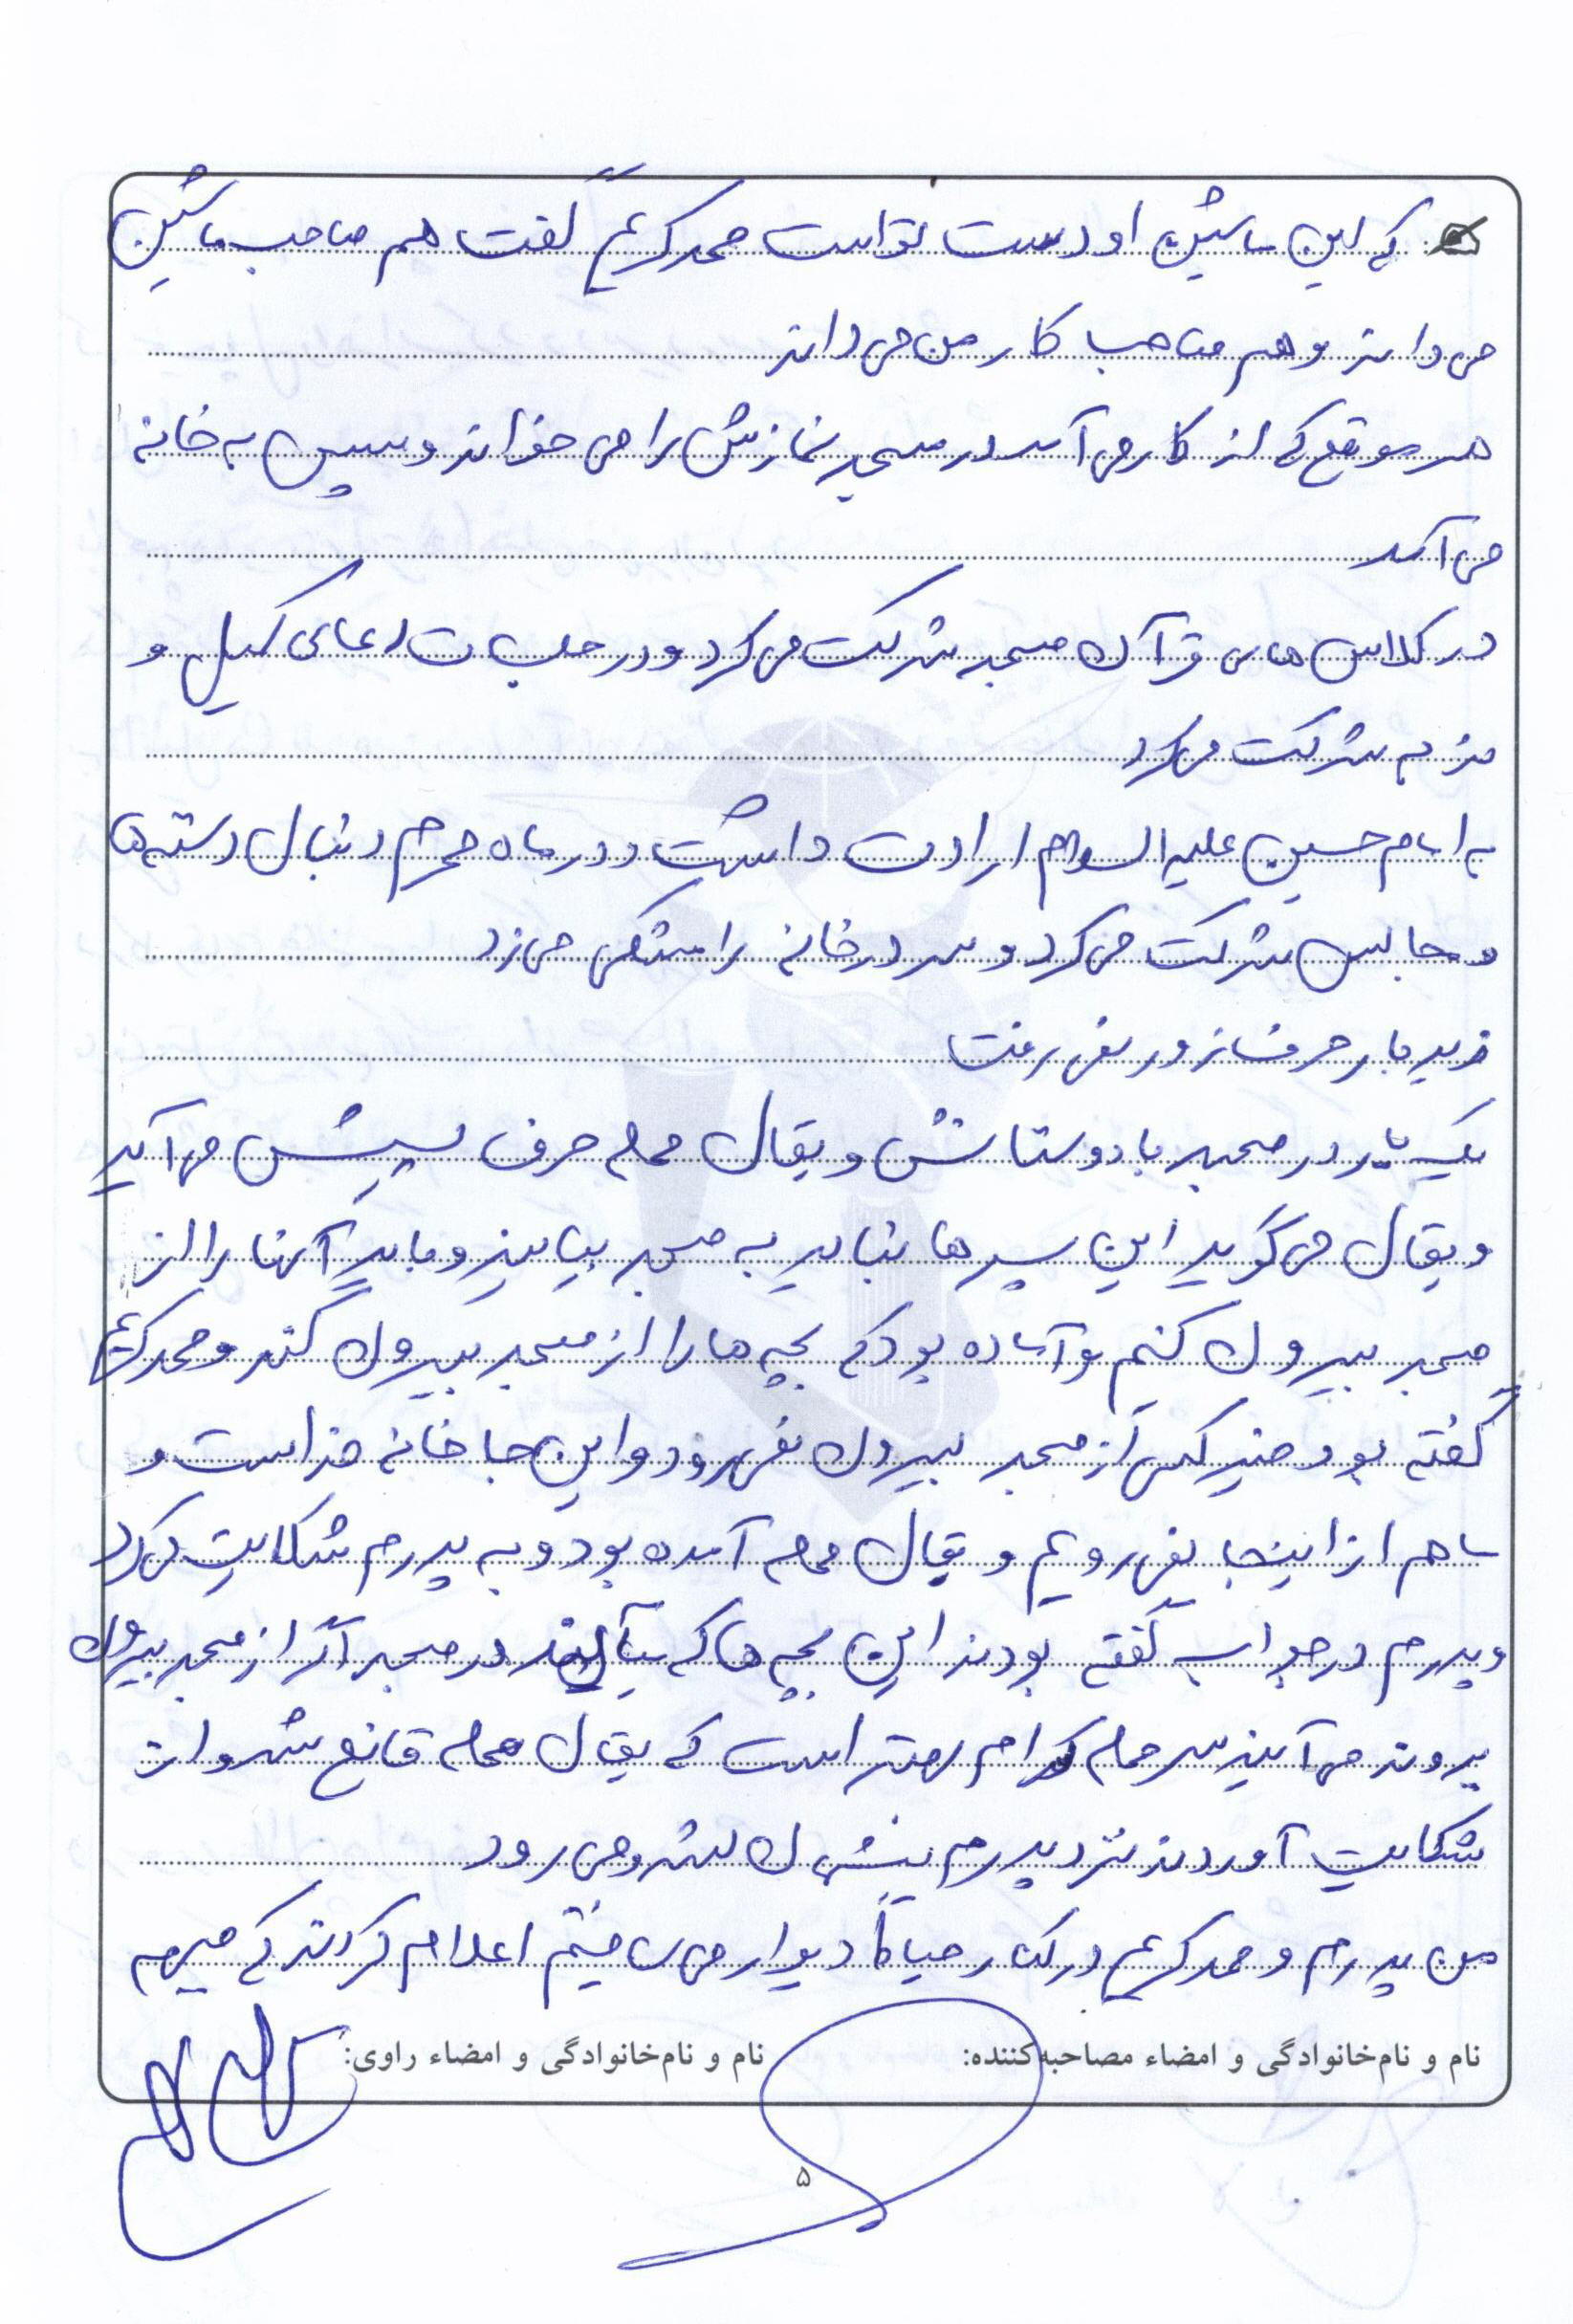 که این ماشین او دست تو است محمدکریم گفت هم صاحب ماشین
می داند و هم صاحب کار من می داند
هر موقع که از کار می آمد در مسجد نمازش را می خواند و سپس به خانه
می آمد
در کلاس های قرآن مسجد شرکت می کرد و در جلسات دعای کمیل و
ندبه شرکت می کرد
به امام حسین علیه السلام ارادت داشت و در ماه محرم دنبال دسته ها
و مجالس شرکت می کرد و سر در خانه را مشکی می زد
زیر بار حرف زور نمی رفت
یک بار در مسجد با دوستانش و بقال محله حرف پیش می آید
و بقال می گوید این پسرها نباید به مسجد بیایند و باید آنها را از
مسجد بیرون کنیم و آماده بود که بچه ها را از مسجد بیرون کند و محمدکریم
گفته بود خیر کسی از مسجد بیرون نمی رود و این جا خانه خداست و
ما هم از اینجا نمی رویم و بقال محله آمده بود و به پدرم شکایت می کرد
و پدرم در جواب گفته بودند این بچه ها که می آیند در مسجد اگر از مسجد بیرون
بروند می آیند سر محله کدام بهتر است که بقال محله قانع شد و از
شکایت آوردند نزد پدرم پشیمان شد و می رود
من پدرم و محمدکریم در کنار حیاط دیوار می ساختیم اعلام کردند که میهمه
نام و نام‌خانوادگی و امضاء مصاحبه‌کننده: نام و نام‌خانوادگی و امضاء راوی:
۵